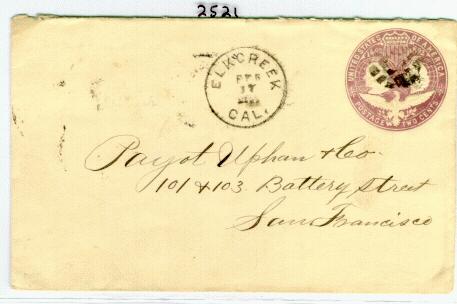 2521
ELK CREEK
FEB
17
CAL.
UNITED STATES OF AMERICA
POSTAGE TWO CENTS
Payot Upham & Co
101 & 103 Battery Street
San Francisco